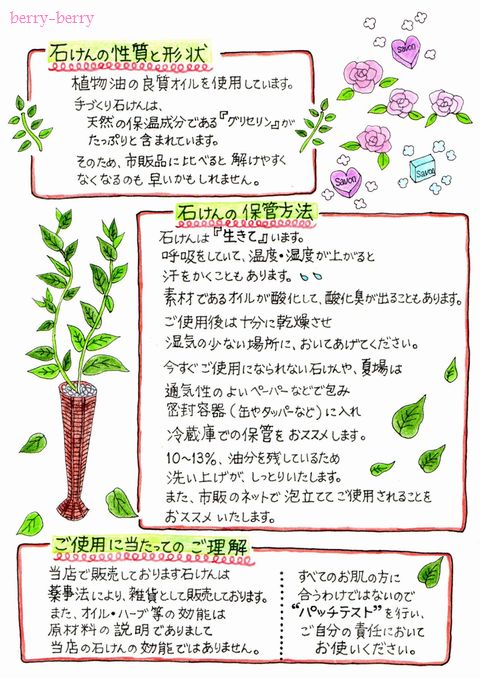 berry-berry
石けんの性質と形状
植物油の良質オイルを使用しています。
手づくり石けんは、
天然の保湿成分である『グリセリン』が
たっぷりと含まれています。
そのため、市販品に比べると解けやすく
なくなるのも早いかもしれません。
Savon
Savon
Savon
石けんの保管方法
石けんは『生きて』います。
呼吸をしていて、温度・湿度が上がると
汗をかくこともあります。
素材であるオイルが酸化して、酸化臭が出ることもあります。
ご使用後は十分に乾燥させ
湿気の少ない場所に、おいてあげてください。
今すぐご使用になられない石けんや、夏場は
通気性のよいペーパーなどで包み
密封容器(缶やタッパーなど)に入れ
冷蔵庫での保管をおススメします。
10~13%、油分を残しているため
洗い上げが、しっとりいたします。
また、市販のネットで泡立ててご使用されることを
おススメいたします。
ご使用に当たってのご理解
当店で販売しております石けんは
薬事法により、雑貨として販売しております。
また、オイル・ハーブ等の効能は
原材料の説明でありまして
当店の石けんの効能ではありません。
すべてのお肌の方に
合うわけではないので
“パッチテスト”を行い、
ご自分の責任において
お使いください。